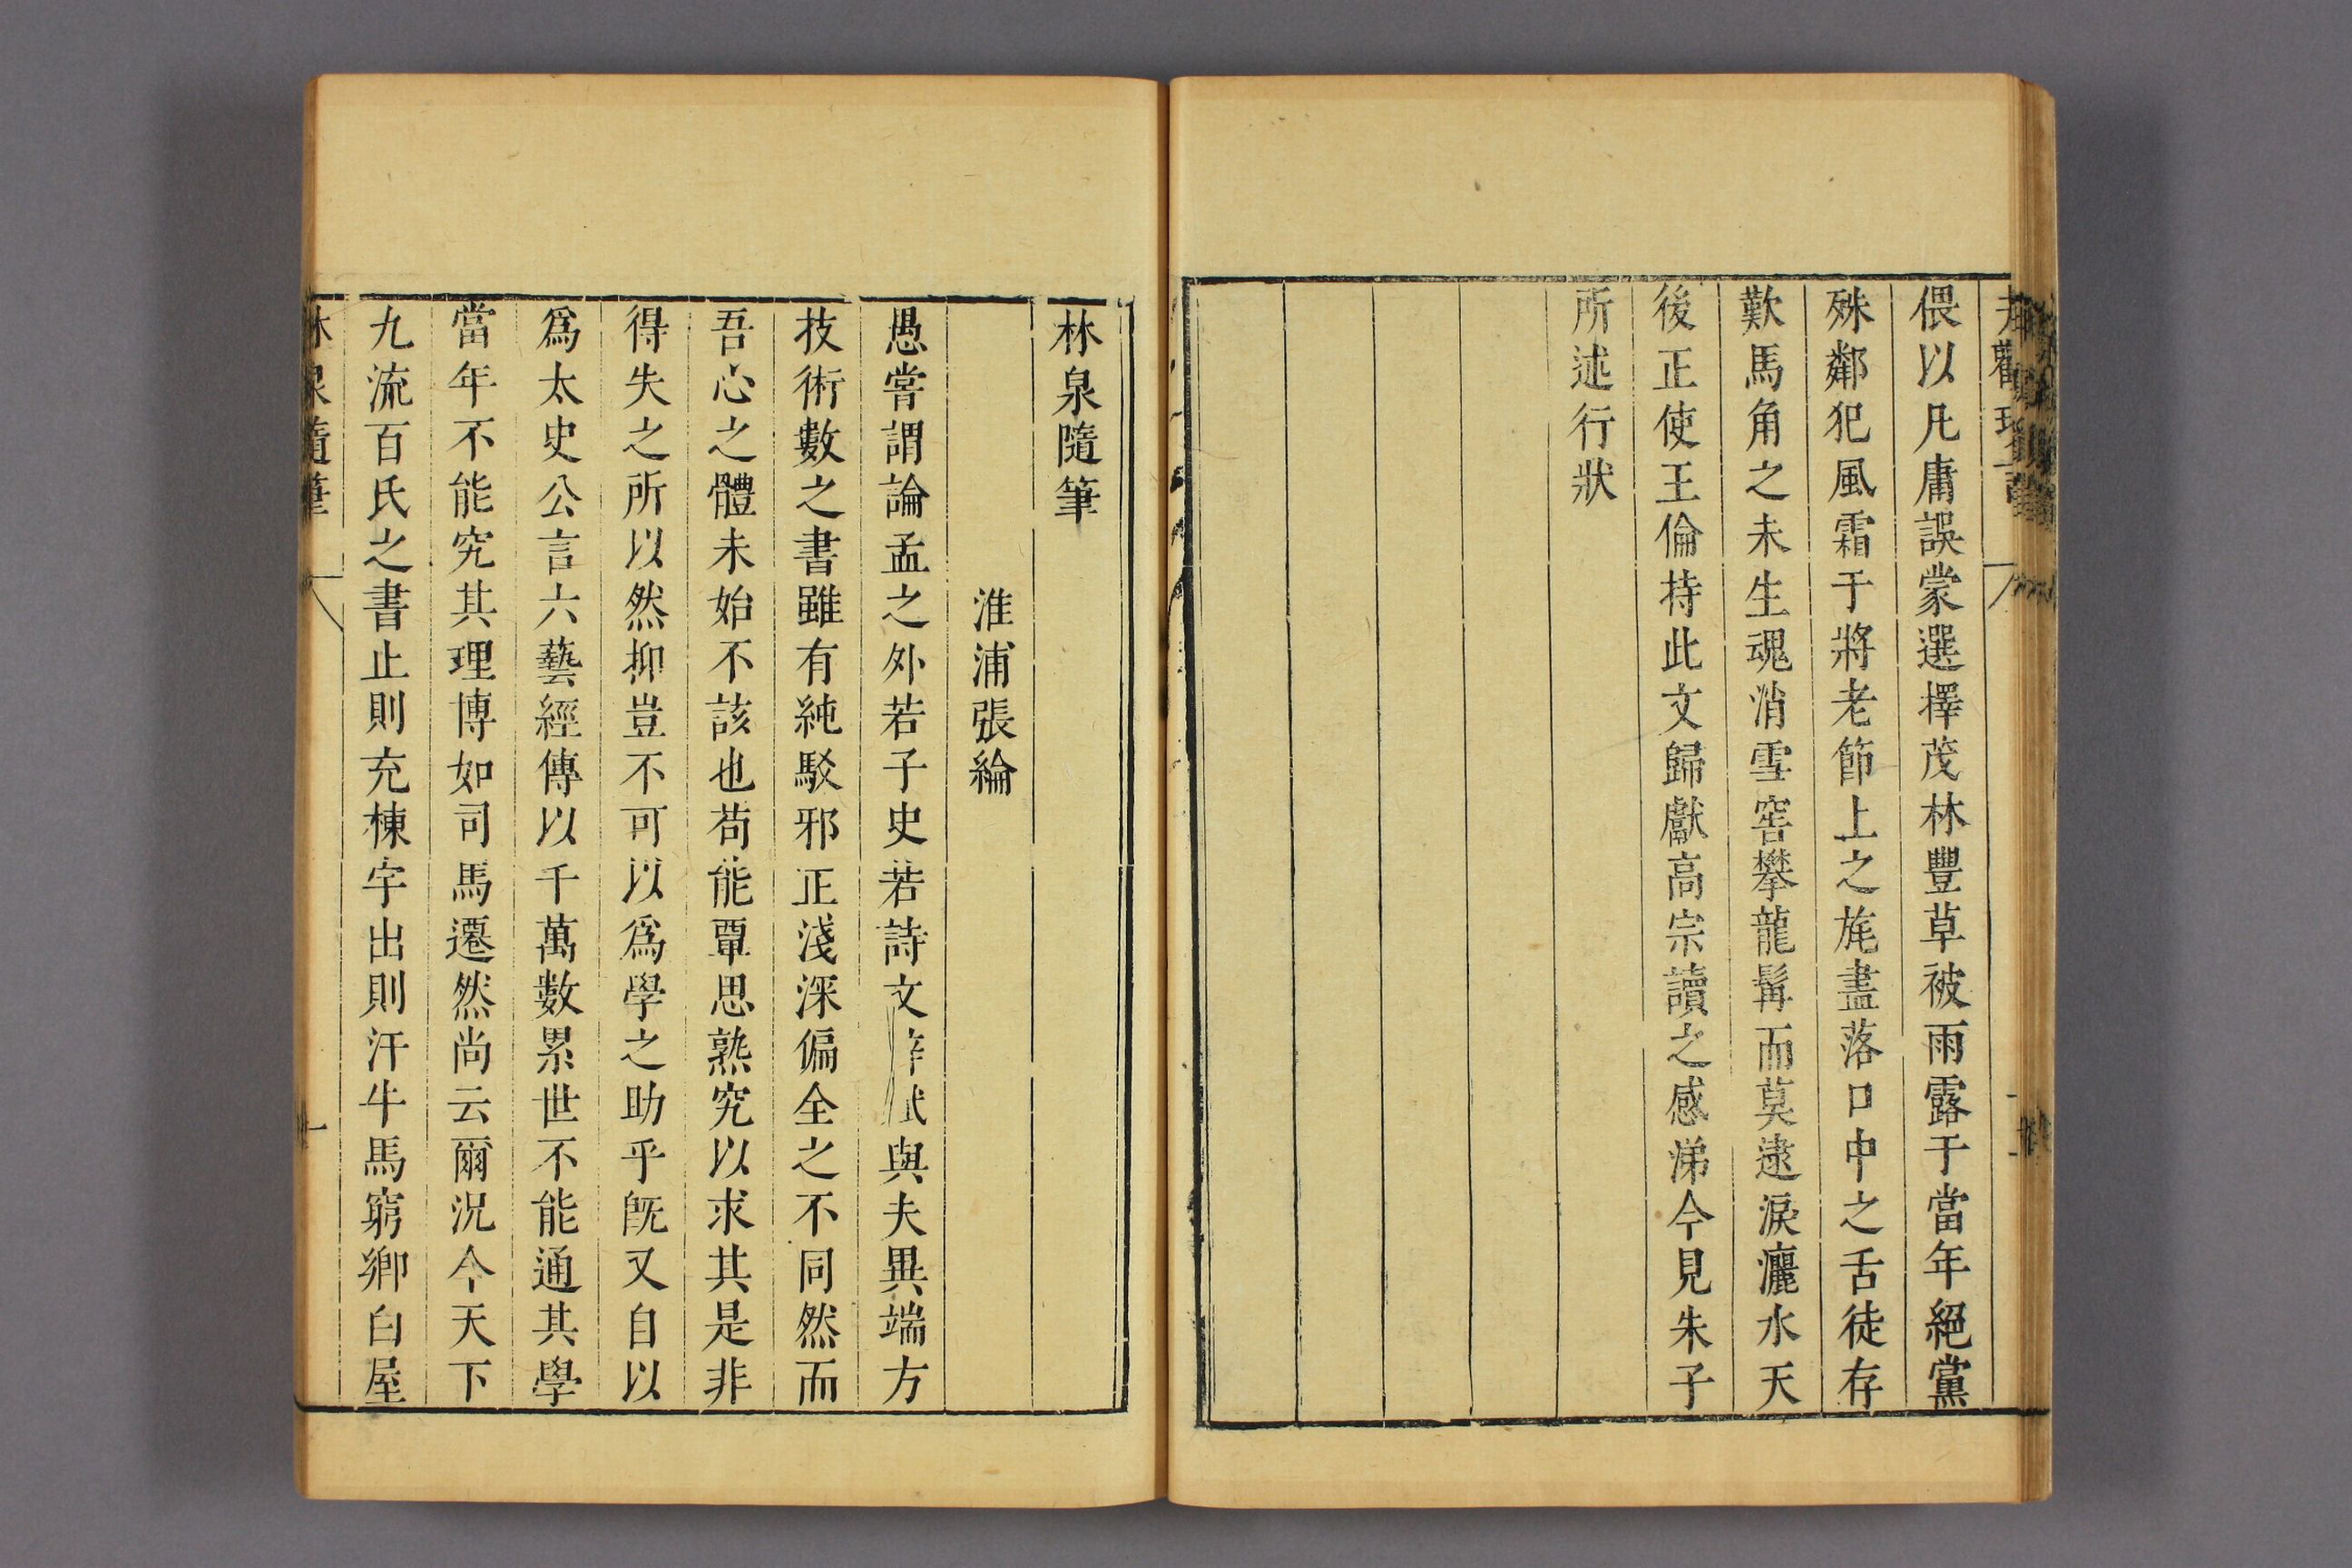 偎以凡庸誤蒙選擇茂林豐草被雨露于當年絕黨
殊鄰犯風霜于將老節上之旄盡落口中之舌徒存
歎馬角之未生魂消雪窖攀龍髯而莫逮淚灑水天
後正使王倫持此文歸獻高宗讀之感涕今見朱子
所述行狀
林泉隨筆
淮浦張綸
愚嘗謂論孟之外若子史若詩文賦與夫異端方
技術數之書雖有純駁邪正淺深偏全之不同然而
吾心之體未始不該也苟能覃思熟究以求其是非
得失之所以然抑豈不可以為學之助乎旣又自以
爲太史公言六藝經傳以千萬數累世不能通其學
當年不能究其理博如司馬遷然尚云爾況今天下
九流百氏之書止則充棟宇出則汗牛馬窮鄉白屋
林泉隨筆
一